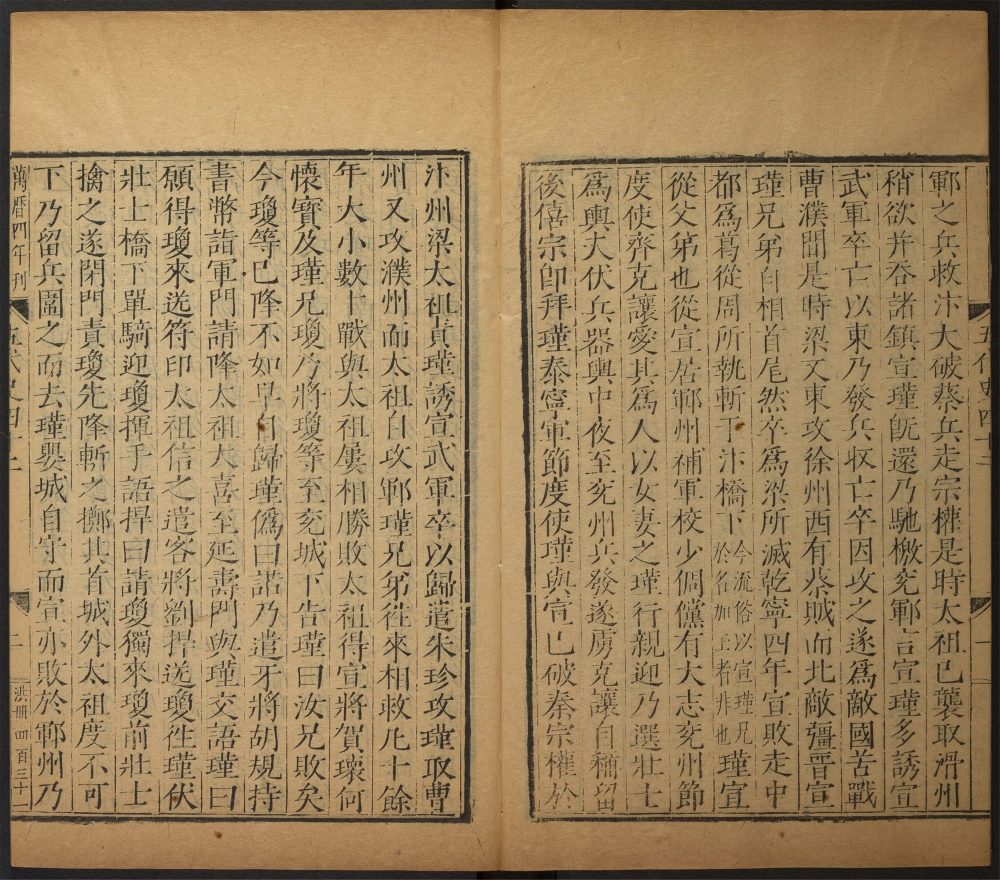 鄆之兵救汴大破蔡兵走宗權是時太祖已襲取滑州
稍欲并吞諸鎮宣瑾旣還乃馳檄兖鄆言宣瑾多誘宣
武軍卒亡以東乃發兵収亡卒因攻之遂爲敵國苦戰
曹濮間是時梁又東攻徐州西有蔡賊而北敵彊晋宣
瑾兄弟自相首尾然卒爲梁所滅乾寧四年宣敗走中
都爲葛從周所執斬于汴橋下今流俗以宣瑾兄於名加王者非也瑾宣
從父弟也從宣居鄆州補軍校少倜儻有大志兖州節
度使齊克讓愛其爲人以女妻之瑾行親迎乃選壯士
爲輿夫伏兵器輿中夜至兖州兵發遂虜克讓自稱留
後僖宗卽拜瑾泰寧軍節度使瑾與宣已破秦宗權於
汴州梁太祖責瑾誘宣武軍卒以歸遣朱珍攻瑾取曹
州又攻濮州而太祖自攻鄆瑾兄弟徃來相救凡十餘
年大小數十戰與太祖屢相勝敗太祖得宣將賀瓌何
懷寶及瑾兄瓊乃將瓊等至兖城下告瑾曰汝兄敗矣
今瓊等已降不如早自歸瑾僞曰諾乃遣牙將胡規持
書幣詣軍門請降太祖大喜至延壽門與瑾交語瑾曰
願得瓊來送符印太祖信之遣客將劉捍送瓊徃瑾伏
壯士橋下單騎迎瓊揮手語捍曰請瓊獨來瓊前壯士
擒之遂閉門責瓊先降斬之擲其首城外太祖度不可
下乃留兵圍之而去瑾嬰城自守而宣亦敗於鄆州乃
萬曆四年刊
五代史四十二
二
洪冊四百三十一